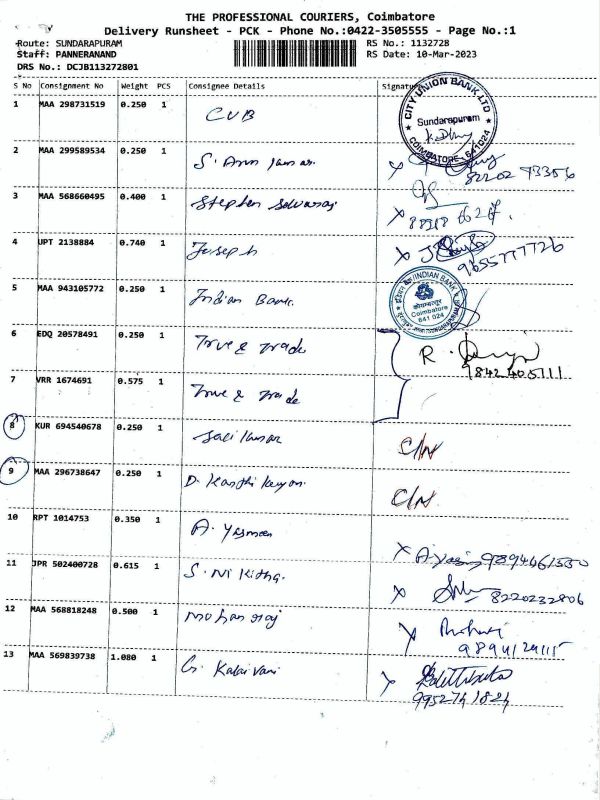 THE PROFESSIONAL COURIERS, Coimbatore
Delivery Runsheet - PCK - Phone No.:0422-3505555 - Page No.:1
Route: SUNDARAPURAM RS No.: 1132728
Staff: PANNERANAND RS Date: 10-Mar-2023
DRS No.: DCJB113272801
S No Consignment No Weight PCS Consignee Details Signature
1 MAA 298731519 0.250 1 CUB
CITY UNION BANK LTD
Sundarapuram
COIMBATORE - 641024
2 MAA 299589534 0.250 1 S.
82202 73356
3 MAA 568660495 0.400 1 Stephen Selvaraj
4 UPT 2138884 0.740 1 Joseph
9655777726
5 MAA 943105772 0.250 1 Indian Bank.
INDIAN BANK
कोयम्बत्तूर
Coimbatore
641 024
6 EDQ 20578491 0.250 1 True & Trade
R.
9842405111
7 VRR 1674691 0.575 1 True & Trade
8 KUR 694540678 0.250 1 Sasikumar
C/N
9 MAA 296738647 0.250 1 D. Karthikeyan.
C/N
10 RPT 1014753 0.350 1 A. Yasmeen
X A. 9894461550
11 JPR 502400728 0.615 1 S. Nikitha.
X 8220232806
12 MAA 568818248 0.500 1 Mohanraj
X
13 MAA 569839738 1.080 1 G. Kalaivani
X
9952741824